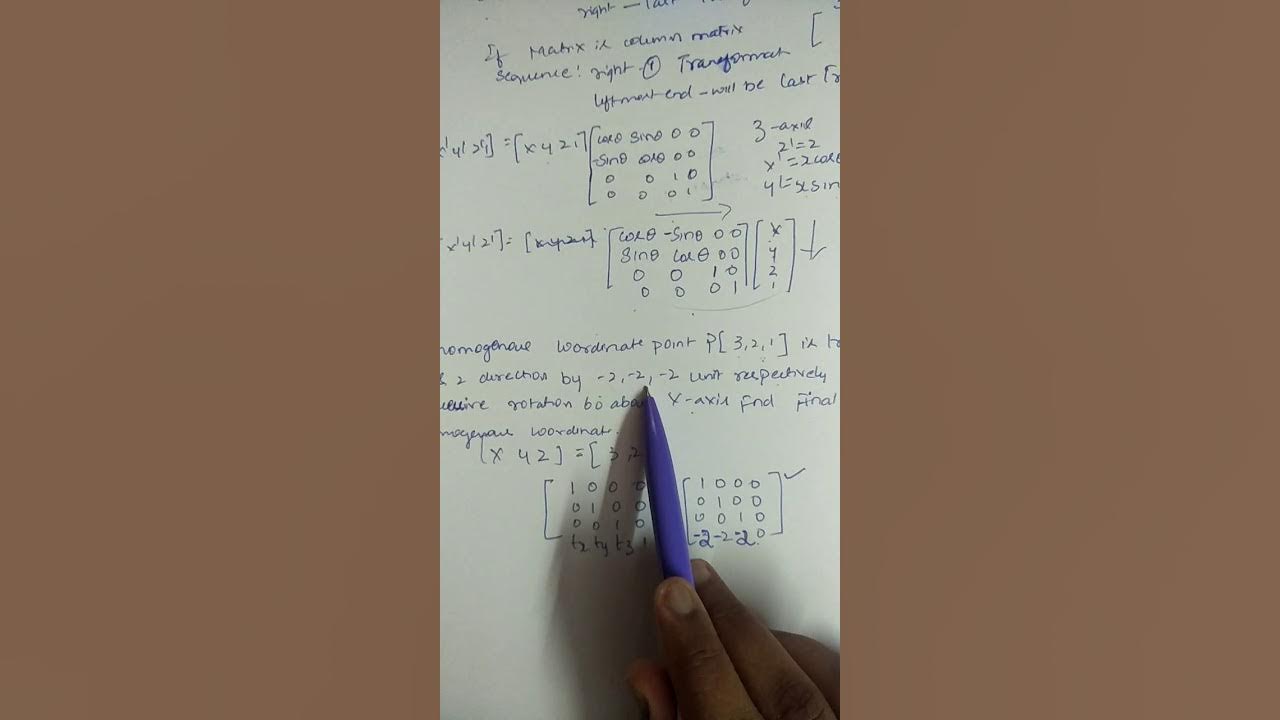 right - last
If Matrix is column matrix [
sequence: right ① Transformat
leftmost end - will be last Tr
x' y' z' 1] = [x y z 1] [cosθ sinθ 0 0
-sinθ cosθ 0 0
0 0 1 0
0 0 0 1]
z-axis
z'=z
x'=xcosθ
y'=xsin
x' y' z'] = [cosθ -sinθ 0 0] [x
sinθ cosθ 0 0 y
0 0 1 0 z
0 0 0 1] 1]
homogenous coordinate point P[3,2,1] is tr
& z direction by -2,-2,-2 unit respectively
rotation 60 about X-axis find final
mogenous coordinate.
[x y z] = [3,2
[1 0 0 0
0 1 0 0
0 0 1 0
tz ty t3 1
[1 0 0 0
0 1 0 0
0 0 1 0
-2 -2 -2 0] ✓